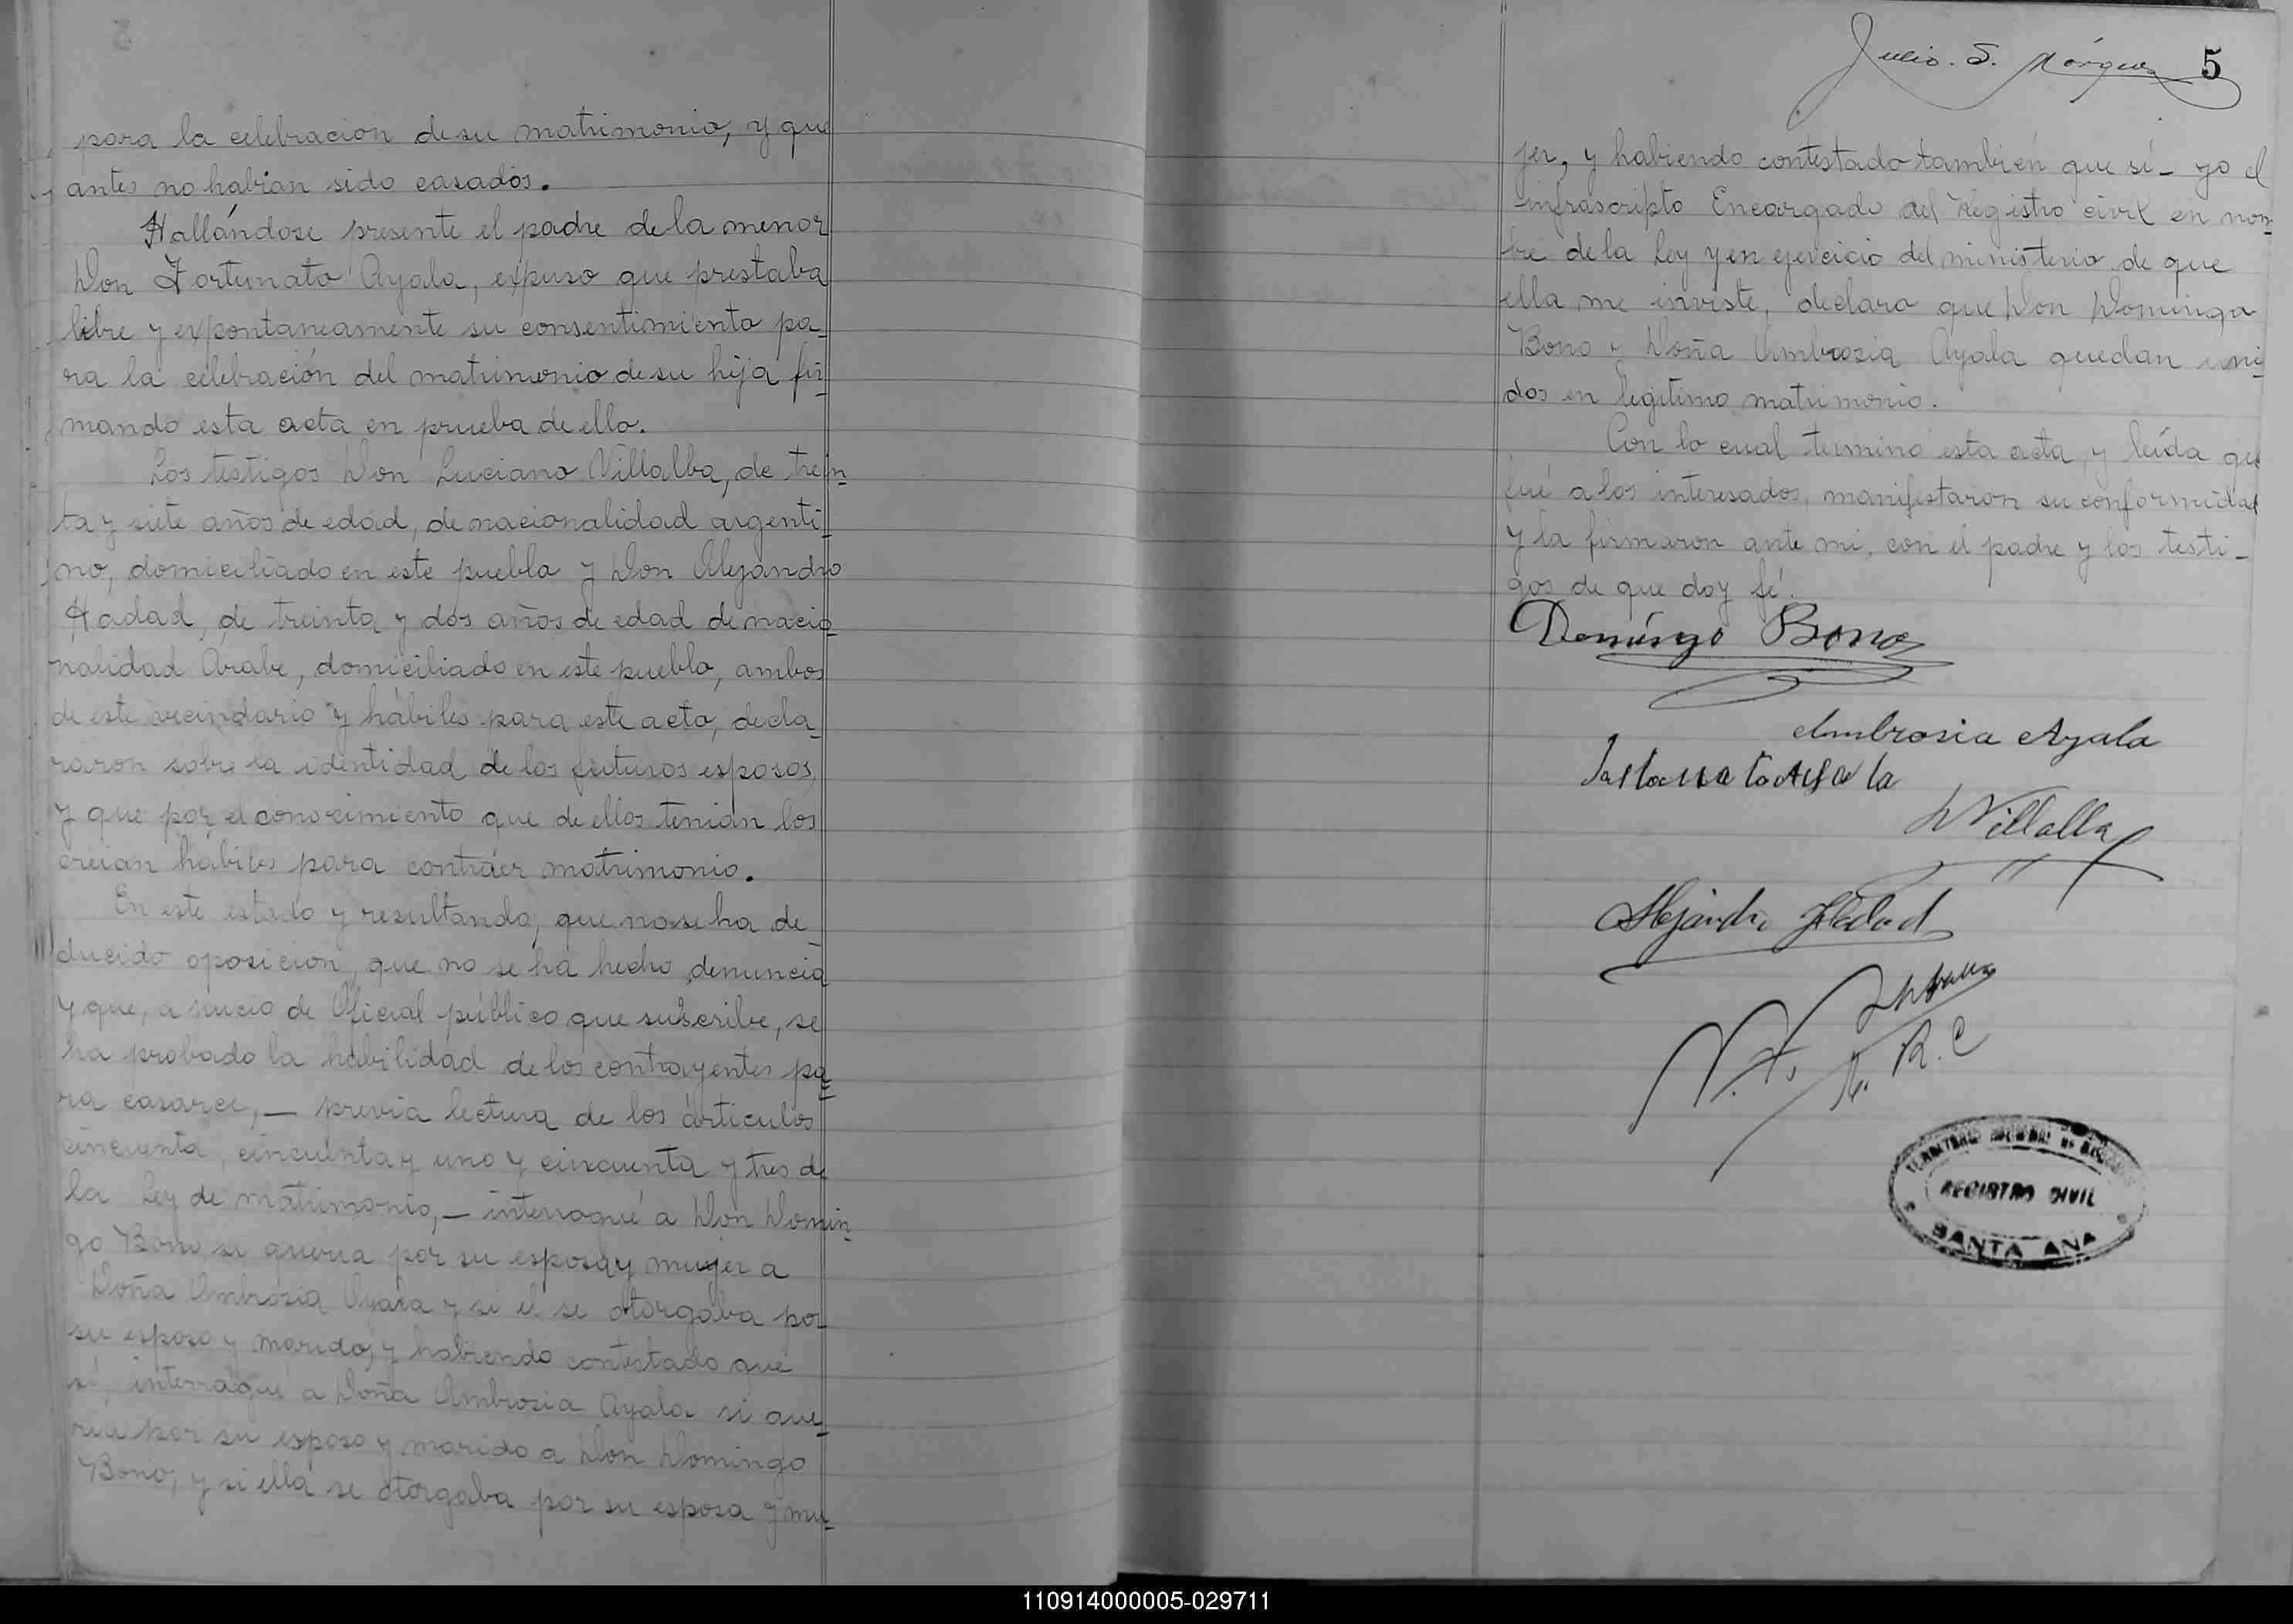 para la celebracion de su matrimonio, y que
antes no habian sido casados.
Hallándose presente el padre de la menor
Don Fortunato Ayala, expuso que prestaba
libre y expontaneamente su consentimiento pa-
ra la celebración del matrimonio de su hija fir-
mando esta acta en prueba de ello.
Los testigos Don Luciano Villalba, de trein-
ta y siete años de edad, de nacionalidad argenti-
no, domiciliado en este pueblo y Don Alejandro
Hadad, de treinta y dos años de edad de nacio-
nalidad Arabe, domiciliado en este pueblo, ambos
de este vecindario y hábiles para este acto, decla-
raron sobre la identidad de los futuros esposos,
y que por el conocimiento que de ellos tenian los
creian hábiles para contraer matrimonio.
En este estado y resultando, que no se ha de-
ducido oposicion, que no se ha hecho denuncia
y que, a juicio de Oficial público que suscribe, se
ha probado la habilidad de los contrayentes pa-
ra casarce, — previa lectura de los árticulos
cincuenta, cincuenta y uno y cincuenta y tres de
la Ley de matrimonio, — interrogué a Don Domin-
go Bono si queria por su esposa y mujer a
Doña Ambrosia Ayala y si él se otorgaba por
su esposo y marido, y habiendo contestado que
sí, interrogué a Doña Ambrosia Ayala si que-
ria por su esposo y marido a Don Domingo
Bono, y si ella se otorgaba por su esposa y mu-
Julio. S. Márquez
5
jer, y habiendo contestado también que sí - yo el
infrascripto Encargado del Registro civil en nom-
bre de la Ley y en ejercicio del ministerio de que
ella me inviste, declaro que Don Domingo
Bono y Doña Ambrosia Ayala quedan uni-
dos en legitimo matrimonio.
Con lo cual terminó esta acta, y leída que
fué a los interesados, manifestaron su conformidad
y la firmaron ante mi, con el padre y los testi-
gos de que doy fé.
Domingo Bono
Ambrosia Ayala
L Villalba
Alejandro Hadad
R. C
TERRITORIO NACIONAL DE MISIONES
REGISTRO CIVIL
SANTA ANA
110914000005-029711